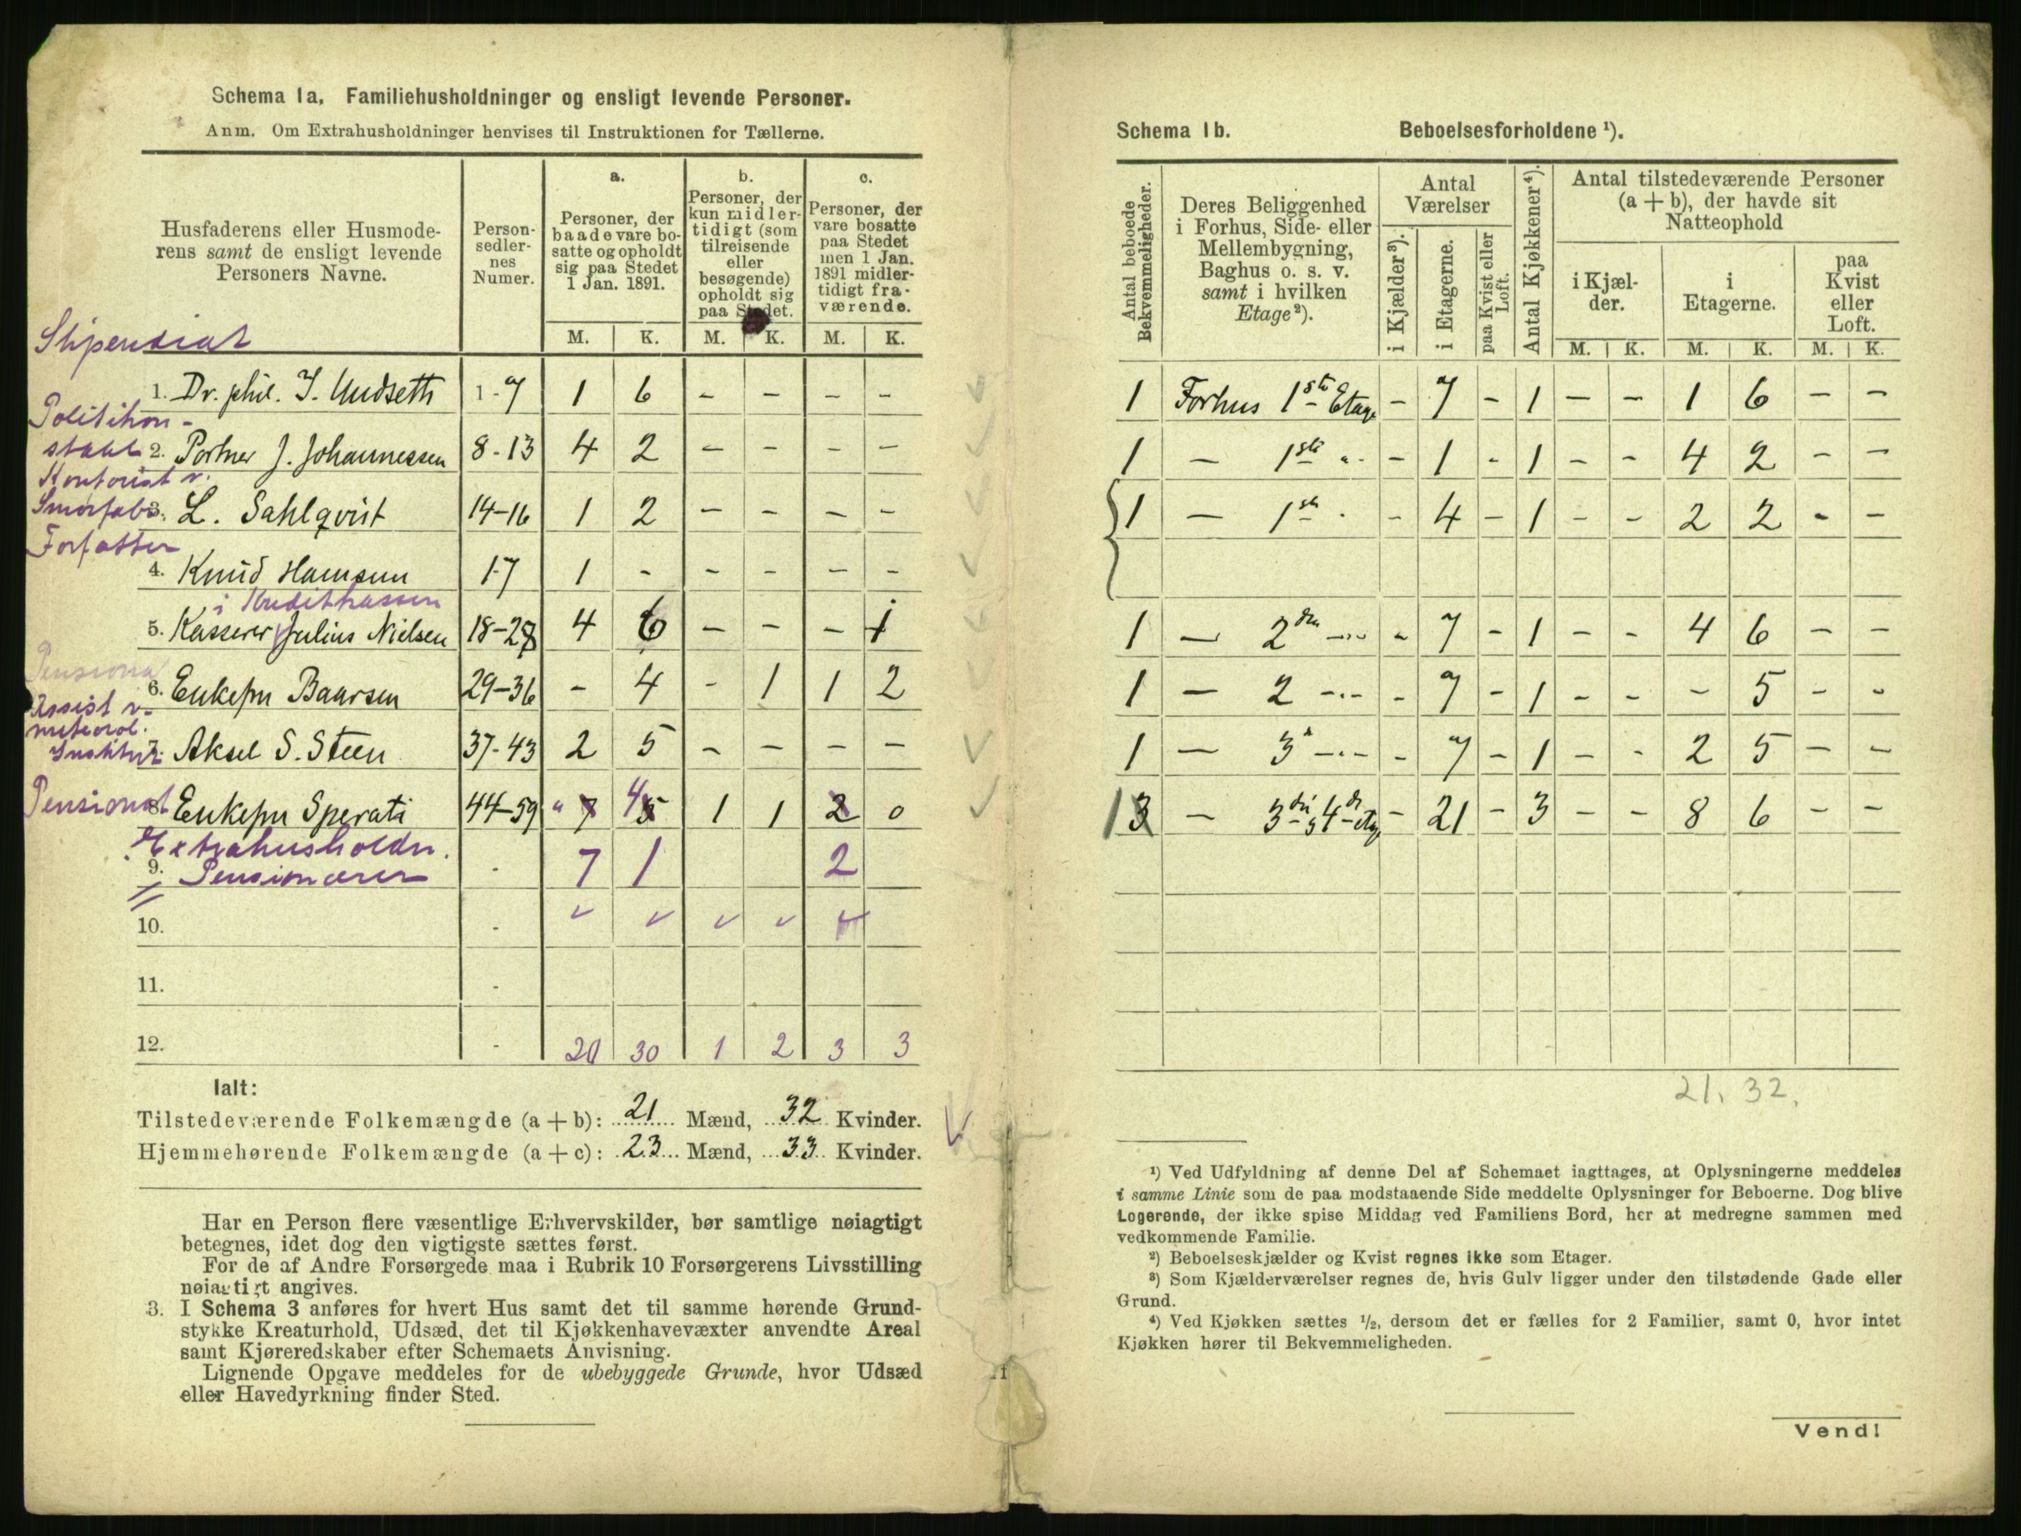 Schema 1a. Familiehusholdninger og ensligt levende Personer.
Anm. Om Extrahusholdninger henvises til Instruktionen for Tællerne.
Husfaderens eller Husmode-
rens samt de ensligt levende
Personers Navne.
Person-
sedler-
nes
Numer.
a.
Personer, der
baade vare bo-
satte og opholdt
sig paa Stedet
1 Jan. 1891.
b.
Personer, der
kun midler-
tidigt (som
tilreisende
eller
besøgende)
opholdt sig
paa Stedet.
c.
Personer, der
vare bosatte
paa Stedet
men 1 Jan.
1891 midler-
tidigt fra-
værende.
M. K. M. K. M. K.
Stipendiat
1. Dr. phil. I. Undseth 1-7 1 6 - - - -
Politikon-
stabl
2. Portner J. Johannessen 8-13 4 2 - - - -
Kontorist v.
Smørfabr.
3. L. Sahlqvist 14-16 1 2 - - - -
Forfatter
4. Knud Hamsun 17 1 - - - - -
i Kreditkassen
5. Kasserer Julius Nielsen 18-28 4 6 - - - 1
Pensionat
6. Enkefru Baarsen 29-36 - 4 - 1 1 2
Assist v.
meteorol.
Institut.
7. Aksel S. Steen 37-43 2 5 - - - -
Pensionat
8. Enkefru Sperati 44-59 " 7 4 5 1 1 2 0
Extrahusholdn.
9. Pensionærer - 7 1 2
10. -
11. -
12. - 20 30 1 2 3 3
Ialt:
Tilstedeværende Folkemængde (a + b): 21 Mænd, 32 Kvinder.
Hjemmehørende Folkemængde (a + c): 23 Mænd, 33 Kvinder.
Har en Person flere væsentlige Erhvervskilder, bør samtlige nøiagtigt
betegnes, idet dog den vigtigste sættes først.
For de af Andre Forsørgede maa i Rubrik 10 Forsørgerens Livsstilling
nøiagtigt angives.
3. I Schema 3 anføres for hvert Hus samt det til samme hørende Grund-
stykke Kreaturhold, Udsæd, det til Kjøkkenhavevæxter anvendte Areal
samt Kjøreredskaber efter Schemaets Anvisning.
Lignende Opgave meddeles for de ubebyggede Grunde, hvor Udsæd
eller Havedyrkning finder Sted.
Schema 1b. Beboelsesforholdene ¹).
Antal beboede
Bekvemmeligheder.
Deres Beliggenhed
i Forhus, Side- eller
Mellembygning,
Baghus o. s. v.
samt i hvilken
Etage²).
Antal
Værelser
i Kjælder³).
i Etagerne.
paa Kvist eller
Loft.
Antal Kjøkkener⁴).
Antal tilstedeværende Personer
(a + b), der havde sit
Natteophold
i Kjæl-
der.
i
Etagerne.
paa
Kvist
eller
Loft.
M. K. M. K. M. K.
1 Forhus 1ste Etage - 7 - 1 - - 1 6 - -
1 — 1ste " - 1 - 1 - - 4 2 - -
1 — 1ste " - 4 - 1 - - 2 2 - -
1 — 2den -"- - 7 - 1 - - 4 6 - -
1 — 2 -"- - 7 - 1 - - - 5 - -
1 — 3 -"- - 7 - 1 - - 2 5 - -
1 3 — 3die 4de Etage - 21 - 3 - - 8 6 - -
21. 32.
¹) Ved Udfyldning af denne Del af Schemaet iagttages, at Oplysningerne meddeles
i samme Linie som de paa modstaaende Side meddelte Oplysninger for Beboerne. Dog blive
Logerende, der ikke spise Middag ved Familiens Bord, her at medregne sammen med
vedkommende Familie.
²) Beboelseskjælder og Kvist regnes ikke som Etager.
³) Som Kjælderværelser regnes de, hvis Gulv ligger under den tilstødende Gade eller
Grund.
⁴) Ved Kjøkken sættes ½, dersom det er fælles for 2 Familier, samt 0, hvor intet
Kjøkken hører til Bekvemmeligheden.
Vend!